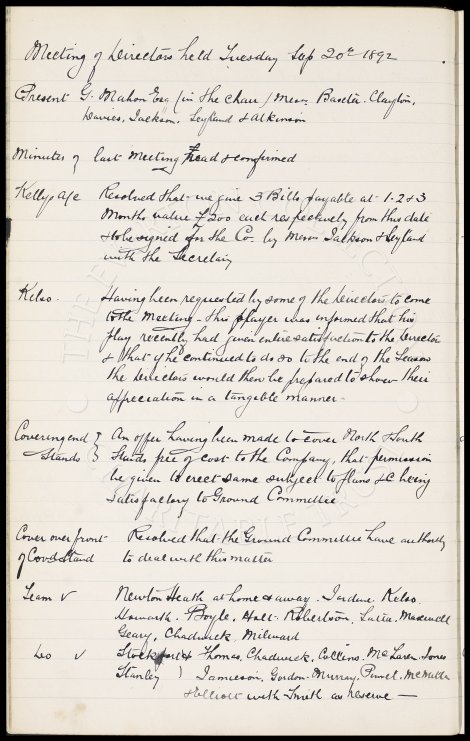 Meeting of Directors held Tuesday Sep 20th 1892
Present G. Mahon Esq (in the chair) Messrs Baxter. Clayton,
Davies, Jackson, Leyland & Atkinson
Minutes of last Meeting read & confirmed
Kellys a/c Resolved that we give 3 Bills payable at 1. 2 & 3
Months value £200 each respectively from this date
& to be signed for the Co. by Messrs Jackson & Leyland
with the Secretary
Kelso. Having been requested by some of the Directors to come
to the Meeting. This player was informed that his
play recently had given entire satisfaction to the Directors
& that if he continued to do so to the end of the Season
the Directors would then be prepared to show their
appreciation in a tangible manner.
Covering end An offer having been made to cover North & South
Stands Stands free of cost to the Company, that permission
be given to erect same subject to plans &c being
satisfactory to Ground Committee
Cover over front Resolved that the Ground Committee have authority
of Stand to deal with this matter
Team v Newton Heath at home & away. Jardine Kelso
Howarth. Boyle, Holt. Robertson, Latta, Maxwell
Geary, Chadwick, Milward
Do v Stockport & Thomas, Chadwick, Collins. McLaren. Jones
Stanley ) Jamieson, Gordon. Murray. Pinnel. McMillan
& Elliott with Smith as reserve —